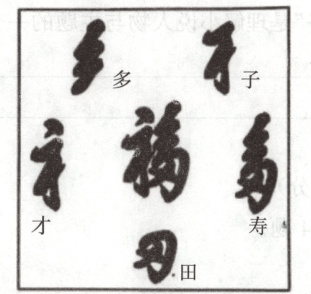 多 子
福
才 寿
田